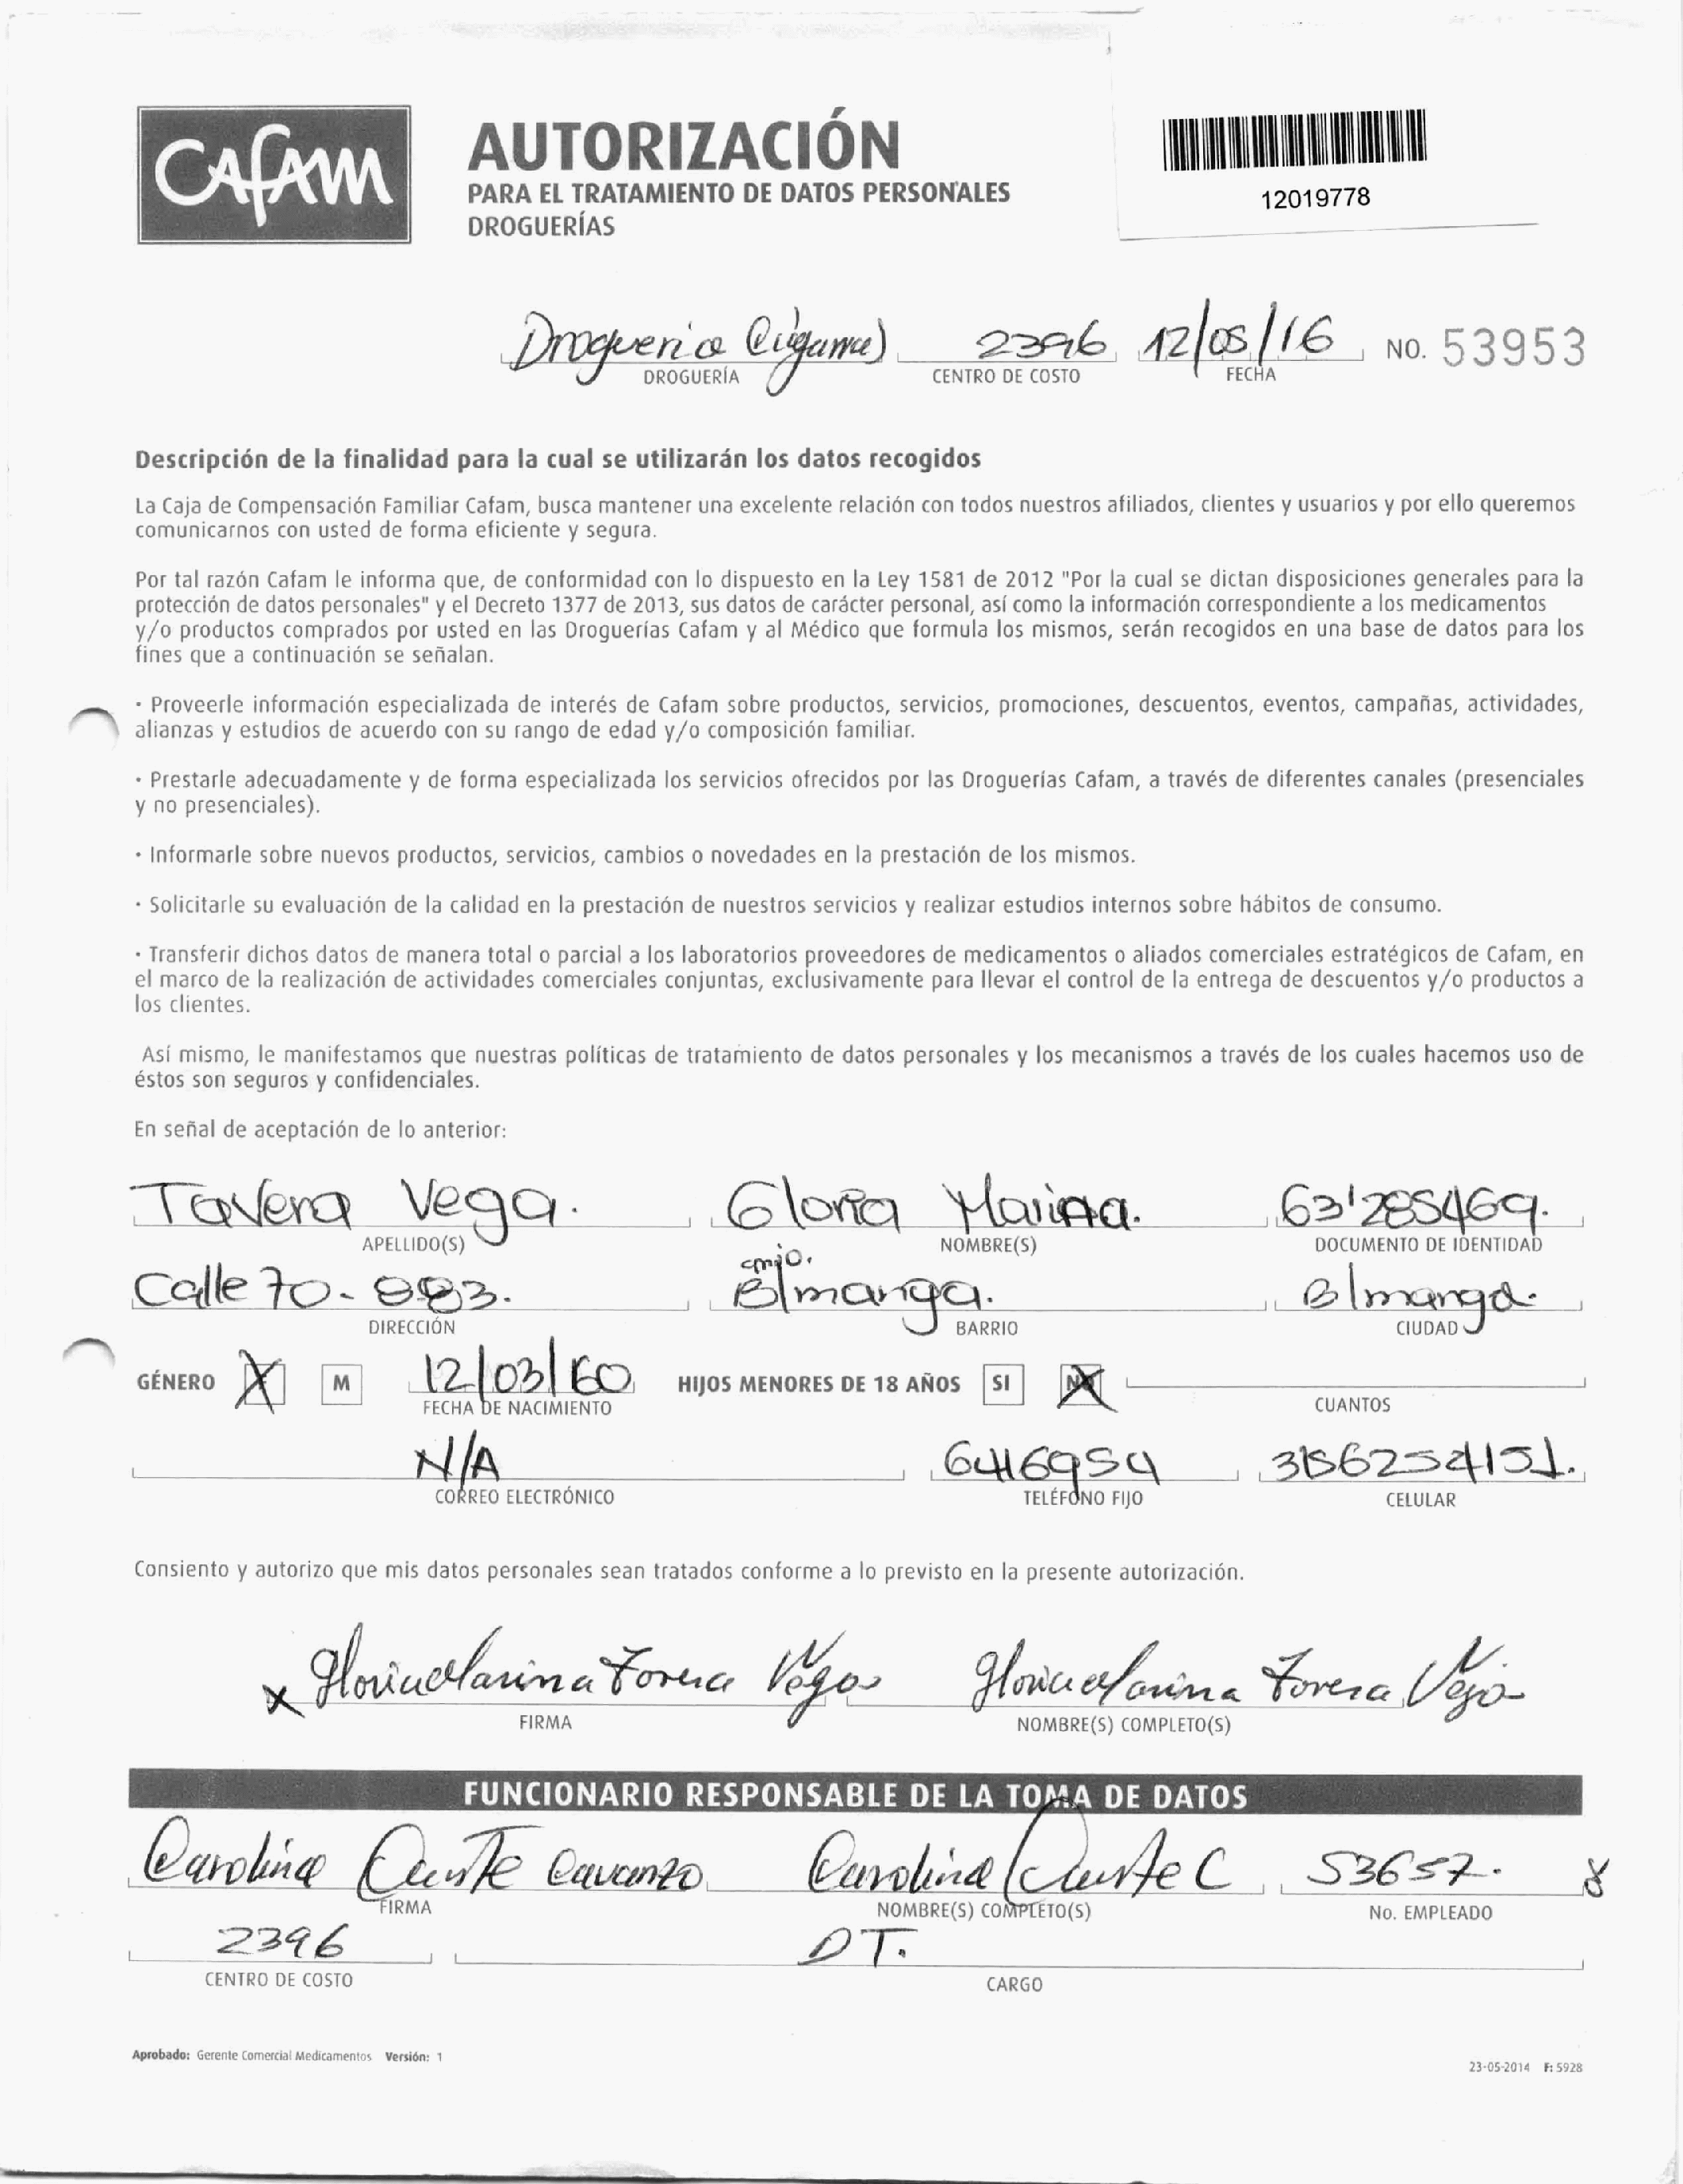 CAFAM
AUTORIZACIÓN
PARA EL TRATAMIENTO DE DATOS PERSONALES
DROGUERÍAS
12019778
Drogueria 2396 12/05/16 NO. 53953
DROGUERÍA CENTRO DE COSTO FECHA
Descripción de la finalidad para la cual se utilizarán los datos recogidos
La Caja de Compensación Familiar Cafam, busca mantener una excelente relación con todos nuestros afiliados, clientes y usuarios y por ello queremos
comunicarnos con usted de forma eficiente y segura.
Por tal razón Cafam le informa que, de conformidad con lo dispuesto en la Ley 1581 de 2012 "Por la cual se dictan disposiciones generales para la
protección de datos personales" y el Decreto 1377 de 2013, sus datos de carácter personal, así como la información correspondiente a los medicamentos
y/o productos comprados por usted en las Droguerías Cafam y al Médico que formula los mismos, serán recogidos en una base de datos para los
fines que a continuación se señalan.
· Proveerle información especializada de interés de Cafam sobre productos, servicios, promociones, descuentos, eventos, campañas, actividades,
alianzas y estudios de acuerdo con su rango de edad y/o composición familiar.
· Prestarle adecuadamente y de forma especializada los servicios ofrecidos por las Droguerías Cafam, a través de diferentes canales (presenciales
y no presenciales).
· Informarle sobre nuevos productos, servicios, cambios o novedades en la prestación de los mismos.
· Solicitarle su evaluación de la calidad en la prestación de nuestros servicios y realizar estudios internos sobre hábitos de consumo.
· Transferir dichos datos de manera total o parcial a los laboratorios proveedores de medicamentos o aliados comerciales estratégicos de Cafam, en
el marco de la realización de actividades comerciales conjuntas, exclusivamente para llevar el control de la entrega de descuentos y/o productos a
los clientes.
Así mismo, le manifestamos que nuestras políticas de tratamiento de datos personales y los mecanismos a través de los cuales hacemos uso de
éstos son seguros y confidenciales.
En señal de aceptación de lo anterior:
Tavera Vega. Gloria Marina. 63'285469.
APELLIDO(S) NOMBRE(S) DOCUMENTO DE IDENTIDAD
Calle 70- B/manga. B/manga.
DIRECCIÓN BARRIO CIUDAD
GÉNERO X M 12/03/60 HIJOS MENORES DE 18 AÑOS SI NO X
FECHA DE NACIMIENTO CUANTOS
N/A 6416954 3156254151.
CORREO ELECTRÓNICO TELÉFONO FIJO CELULAR
Consiento y autorizo que mis datos personales sean tratados conforme a lo previsto en la presente autorización.
x Gloria Marina Tovera Vega Gloria Marina Tovera Vega
FIRMA NOMBRE(S) COMPLETO(S)
FUNCIONARIO RESPONSABLE DE LA TOMA DE DATOS
Carolina Carolina C 53657.
FIRMA NOMBRE(S) COMPLETO(S) No. EMPLEADO
2396 DT.
CENTRO DE COSTO CARGO
Aprobado: Gerente Comercial Medicamentos Versión: 1
23-05-2014 F: 5928